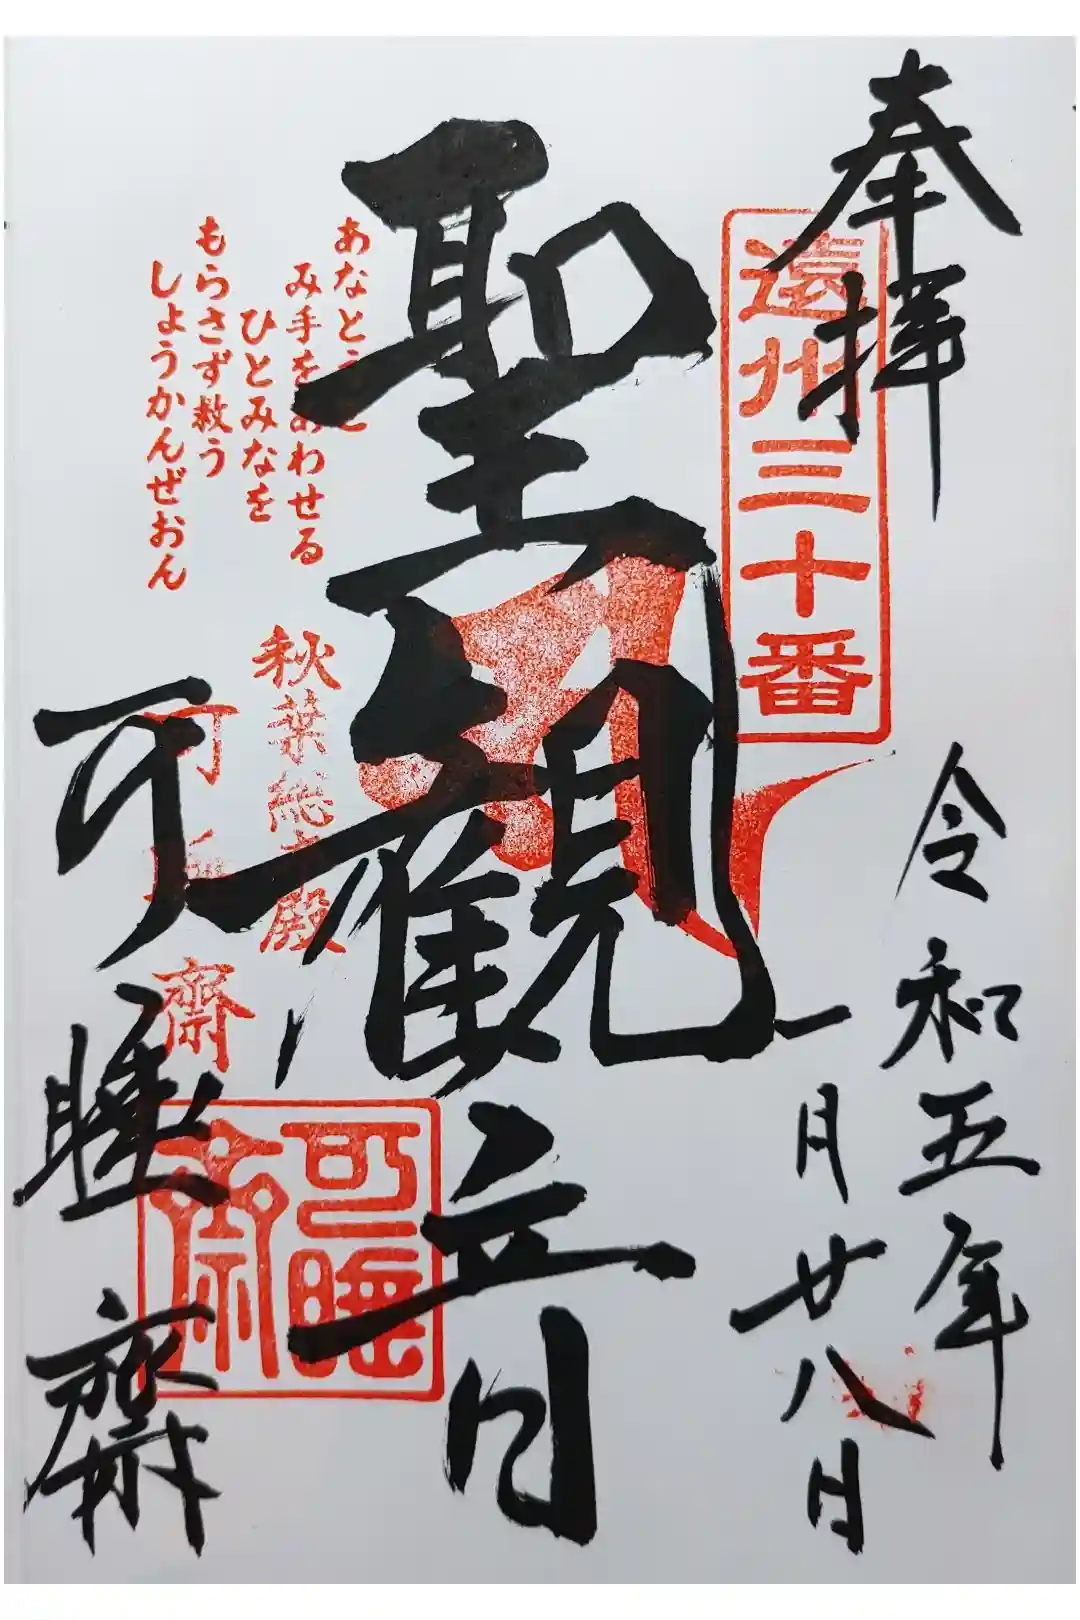 奉拝
遠州三十番
令和五年
一月廿八日
聖観音
あなとうと
み手をあわせる
ひとみなを
もらさず救う
しょうかんぜおん
秋葉総本殿
可睡斎
可睡齋
可睡齋